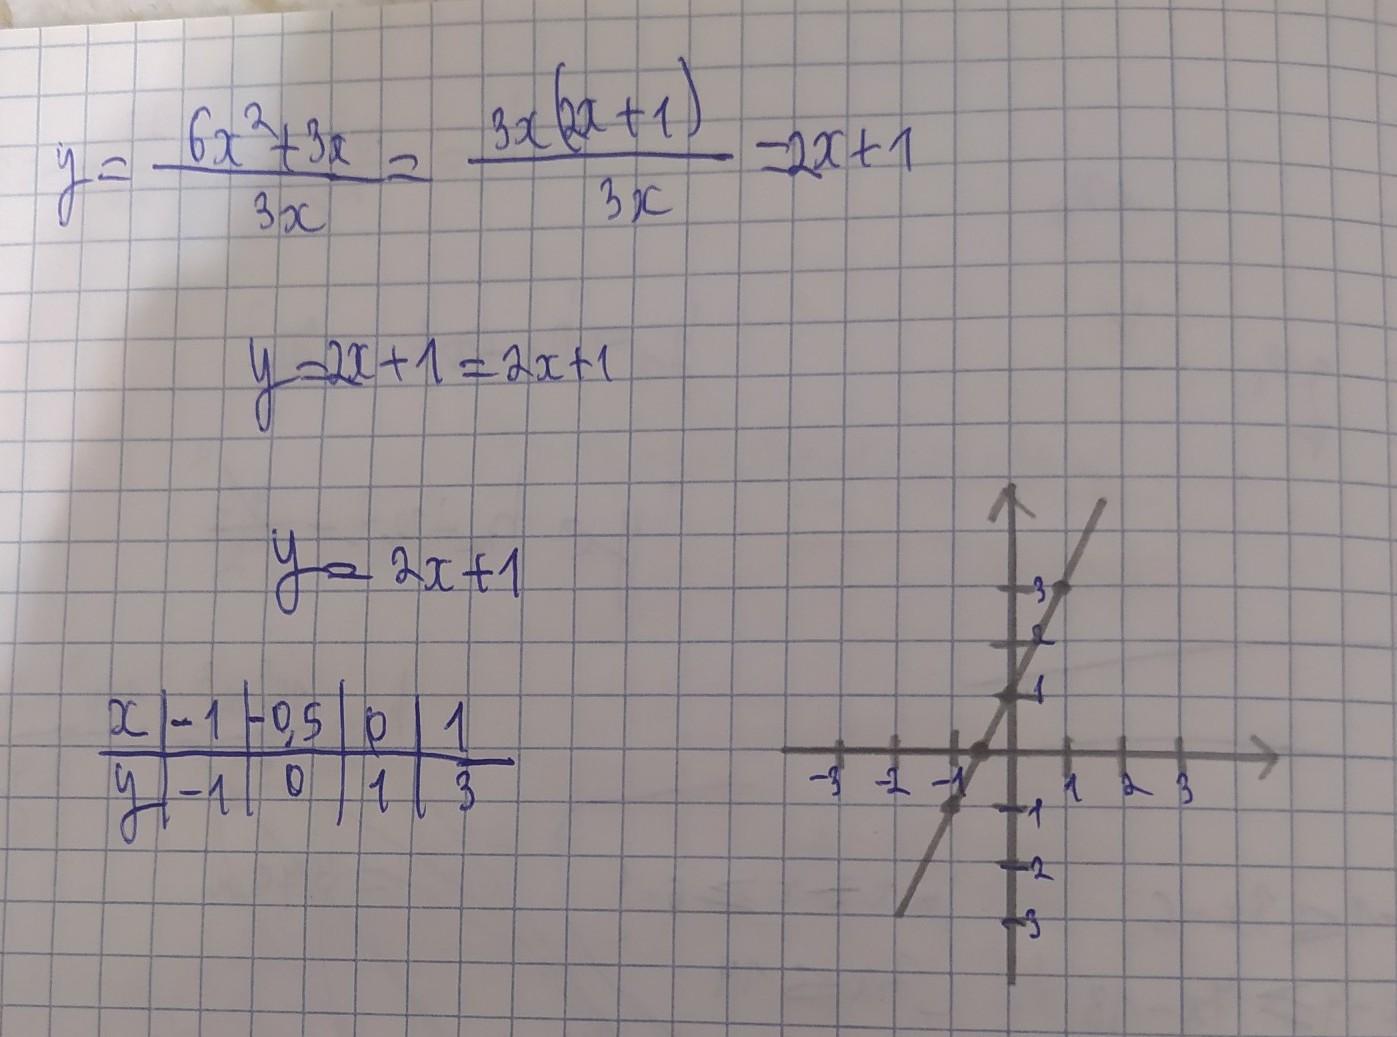 y = (6x²+3x)/(3x) = (3x(2x+1))/(3x) = 2x+1
y = 2x+1 = 2x+1
y = 2x+1
x | -1 | -0,5 | 0 | 1
y | -1 | 0 | 1 | 3
3
2
1
-3 -2 -1 1 2 3
-1
-2
-3